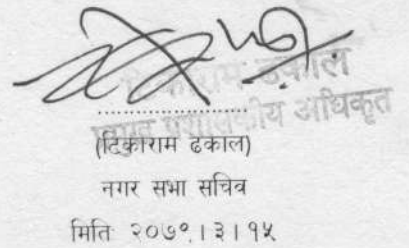 टिकाराम ढकाल
प्रमुख प्रशासकीय अधिकृत
(टिकाराम ढकाल)
नगर सभा सचिव
मिति २०७९।३।१५